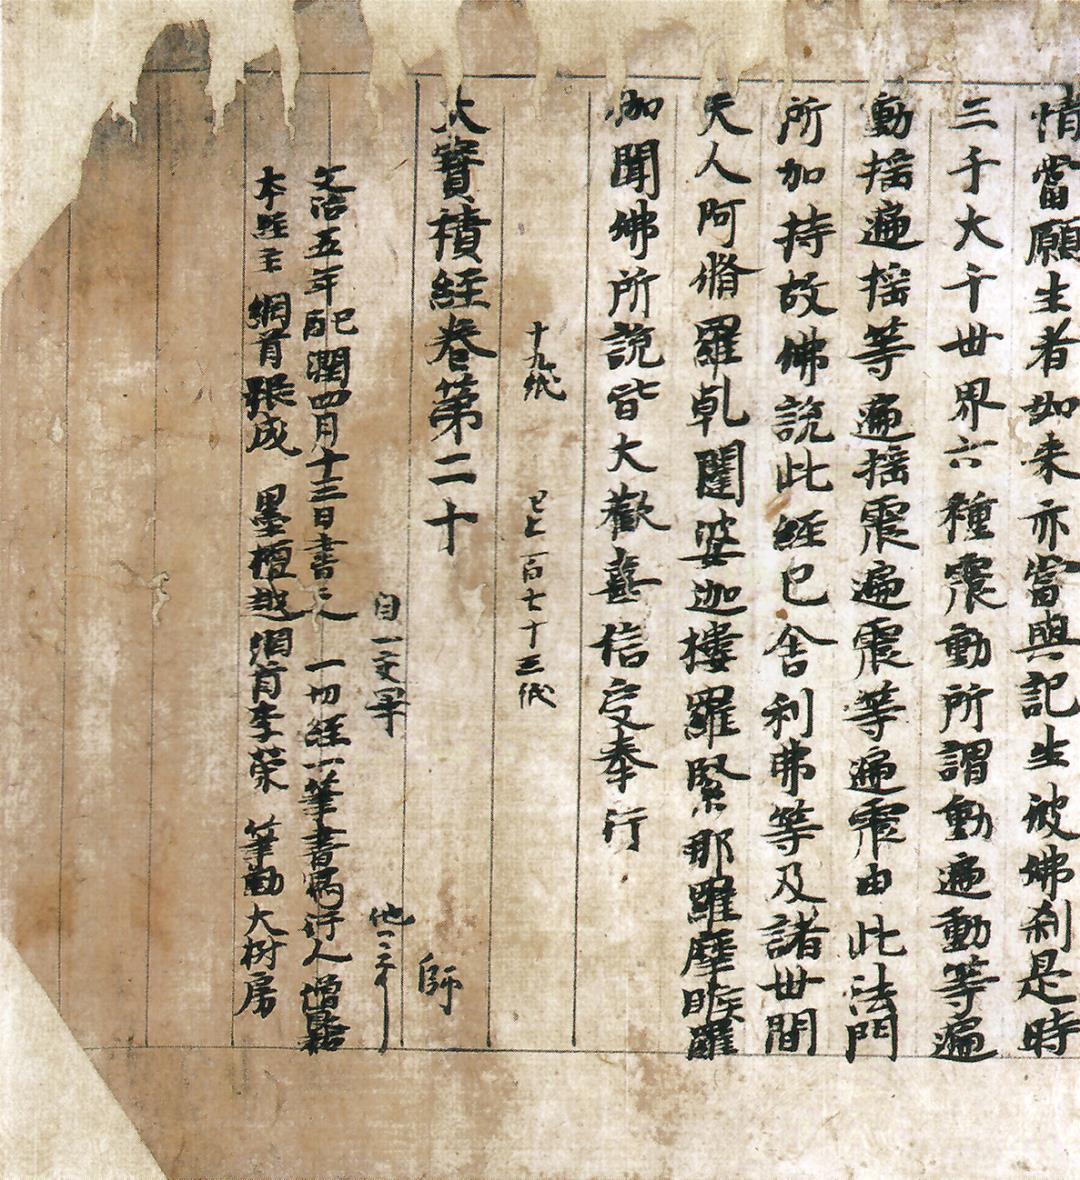 情當願生者如来亦當與記生彼佛刹是時
三千大千世界六種震動所謂動遍動等遍
動揺遍揺等遍揺震遍震等遍震由此法門
所加持故佛說此經已舍利弗等及諸世間
天人阿脩羅乹闥婆迦樓羅緊那羅摩睺羅
伽聞佛所說皆大歡喜信受奉行
十九紙 已上百七十三紙
大寶積經卷第二十
師
自一交畢 他一交了
文治五年己酉潤四月十三日書之 一切經一筆書寫行人僧
本經主 綱首張成 墨檀越綱首李榮 筆勤大樹房